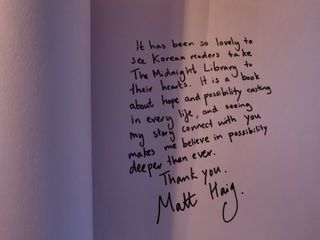 It has been so lovely to
see Korean readers take
The Midnight Library to
their hearts. It is a book
about hope and possibility existing
in every life, and seeing
my story connect with you
makes me believe in possibility
deeper than ever.
Thank you.
Matt Haig.